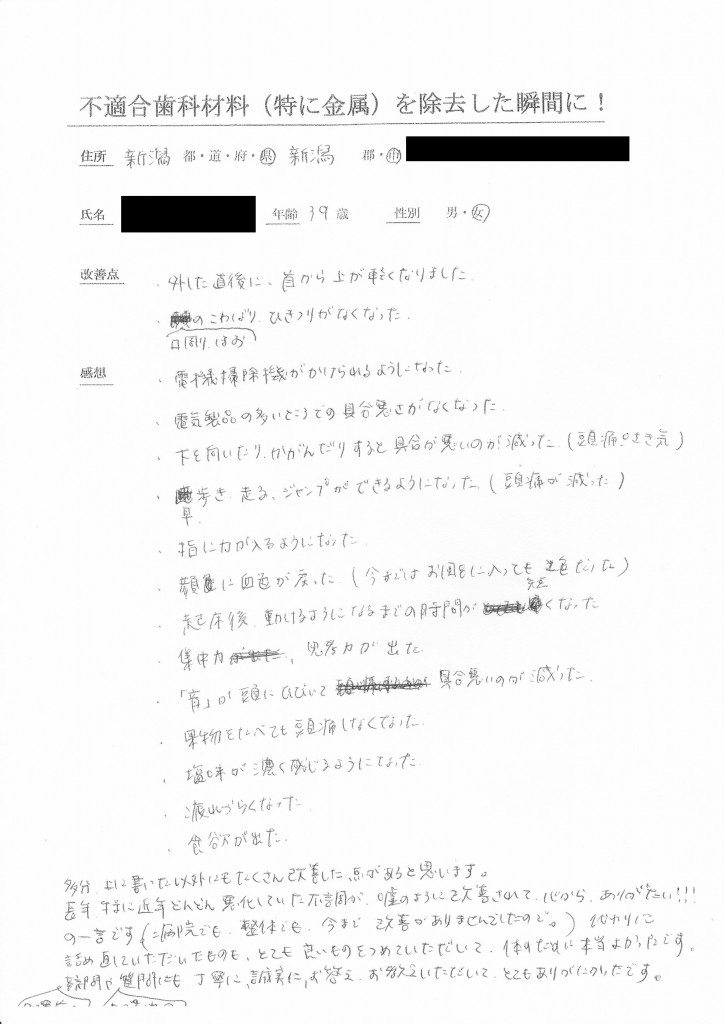 不適合歯科材料（特に金属）を除去した瞬間に！
住所 新潟 都・道・府・県 新潟 郡・市
氏名 年齢 39 歳 性別 男・女
改善点 ・外した直後に、首から上が軽くなりました。
・のこわばり、ひきつりがなくなった。
口周り、ほお
感想 ・電機掃除機がかけられるようになった。
・電気製品の多いところでの具合悪さがなくなった。
・下を向いたり、かがんだりすると具合が悪いのが減った。(頭痛、はき気)
・歩き、走る、ジャンプができるようになった。(頭痛が減った)
早
・指に力が入るようになった。
・顔に血色が戻った。(今までは お風呂に入っても 色だった)
・起床後、動けるようになるまでの時間が くなった
短
・集中力、忍耐力が出た
・「音」が頭にひびいて 具合悪いのが減った。
・果物をたべても頭痛しなくなった。
・塩味が濃く感じるようになった。
・疲れづらくなった。
・食欲が出た。
多分、上に書いた以外にもたくさん改善した点があると思います。
長年、特に近年どんどん悪化していた不調が、嘘のように改善されて、心から、ありがたい!!!
の一言です(病院でも、整体でも、今まで改善がありませんでしたので。) 代わりに
詰め直していただいたものも、とても良いものをつめていただいて、体のために本当よかったです。
質問にも 丁寧に、誠実に、お答え、お教えいただいて、とてもありがたかったです。